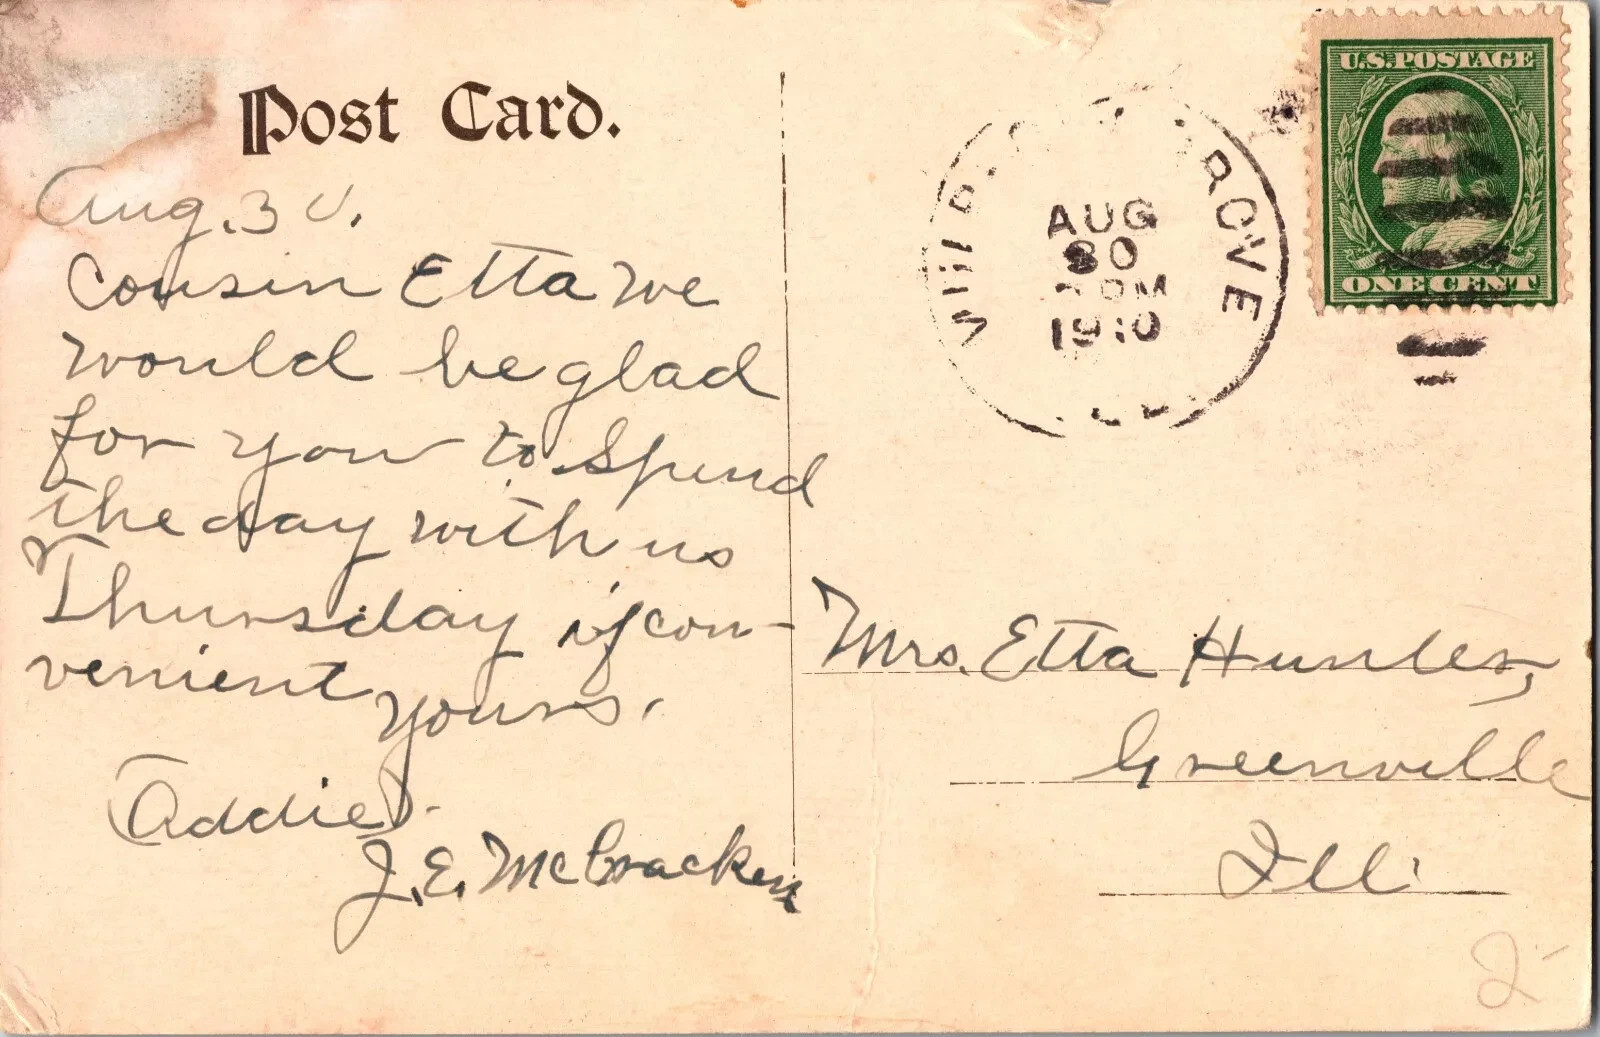 Post Card.
Aug. 30.
Cousin Etta We
would be glad
for you to Spend
the day with us
Thursday if con-
venient
Yours.
(Addie).
J. E. McCracken
U.S. POSTAGE
ONE CENT
AUG
30
PM
1910
Mrs. Etta Hunter,
Greenville
Ill.
2